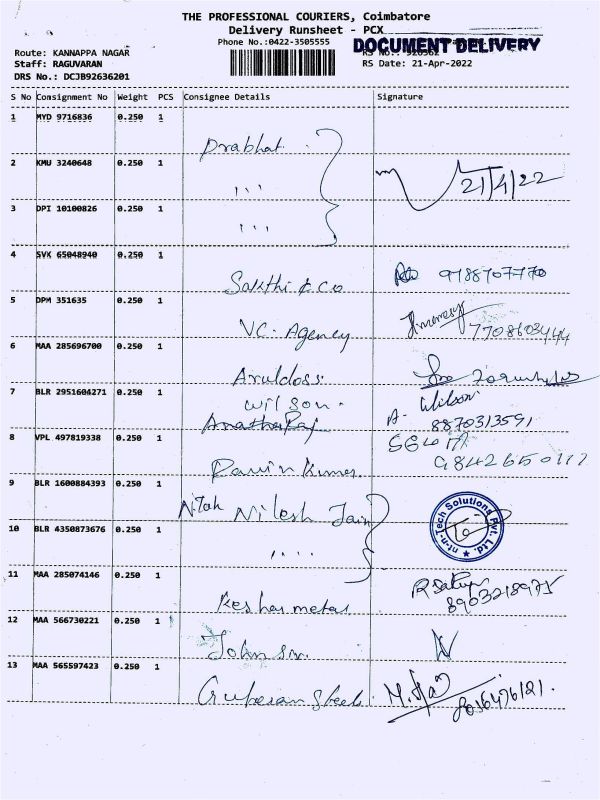 THE PROFESSIONAL COURIERS, Coimbatore
Delivery Runsheet - PCX
Phone No.:0422-3505555
DOCUMENT DELIVERY
Route: KANNAPPA NAGAR
RS No.: 920562
Staff: RAGUVARAN
RS Date: 21-Apr-2022
DRS No.: DCJB92636201
S No Consignment No Weight PCS Consignee Details Signature
1 MYD 9716836 0.250 1
Prabhat
2 KMU 3240648 0.250 1
,,, 21/4/22
3 DPI 10100826 0.250 1
,,,
4 SVK 65048940 0.250 1
Sakthi & Co 9788707770
5 DPM 351635 0.250 1
VC. Agency 7708603444
6 MAA 285696700 0.250 1
Aruldoss
Wilson. A- Wilson
7 BLR 2951604271 0.250 1
8870313591
8 VPL 497819338 0.250 1
Ravin Kumar
9 BLR 1600884393 0.250 1
Nilesh Jain
nt-n-Tech Solutions Pvt. Ltd.
10 BLR 4350873676 0.250 1
,,,,
11 MAA 285074146 0.250 1
Keshar metal 8903218975
12 MAA 566730221 0.250 1
John sn.
13 MAA 565597423 0.250 1
Steels